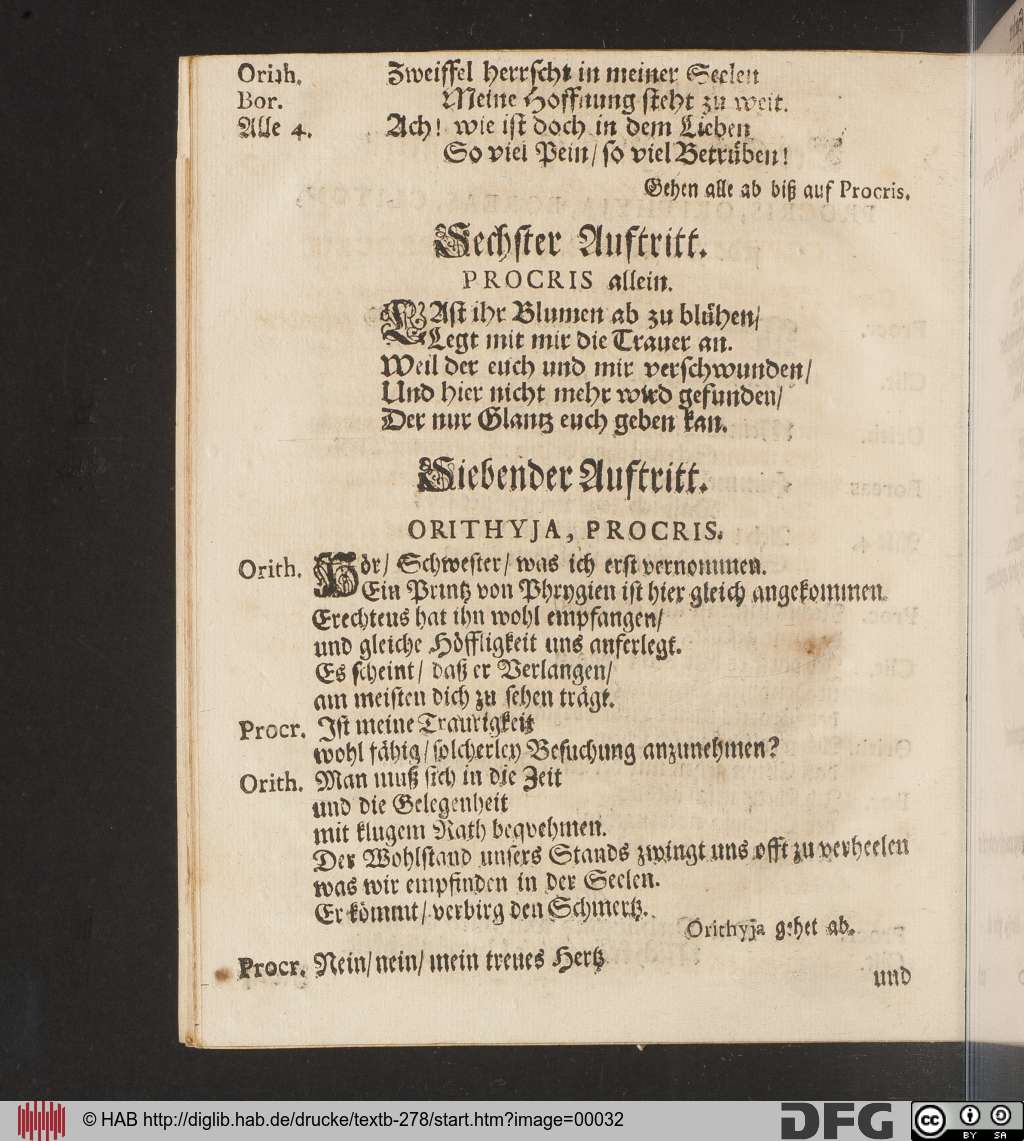 Orith. Zweiffel herrscht in meiner Seelen
Bor. Meine Hoffnung steht zu weit.
Alle 4. Ach! wie ist doch in dem Lieben
So viel Pein/ so viel Betrüben!
Gehen alle ab biß auf Procris.
Sechster Auftritt.
PROCRIS allein.
LAst ihr Blumen ab zu blühen/
Legt mit mir die Trauer an.
Weil der euch und mir verschwunden/
Und hier nicht mehr wird gefunden/
Der nur Glantz euch geben kan.
Siebender Auftritt.
ORITHYJA, PROCRIS.
Orith. Hör/ Schwester/ was ich erst vernommen.
Ein Printz von Phrygien ist hier gleich angekommen
Erechteus hat ihn wohl empfangen/
und gleiche Höffligkeit uns auferlegt.
Es scheint/ daß er Verlangen/
am meisten dich zu sehen trägt.
Procr. Ist meine Traurigkeit
wohl fähig/ solcherley Besuchung anzunehmen?
Orith. Man muß sich in die Zeit
und die Gelegenheit
mit klugem Rath beqvehmen.
Der Wohlstand unsers Stands zwingt uns offt zu verheelen
was wir empfinden in der Seelen.
Er kömmt/ verbirg den Schmertz.
Orithyja gehet ab.
Procr. Nein/ nein/ mein treues Hertz
und
© HAB http://diglib.hab.de/drucke/textb-278/start.htm?image=00032
DFG
cc BY SA